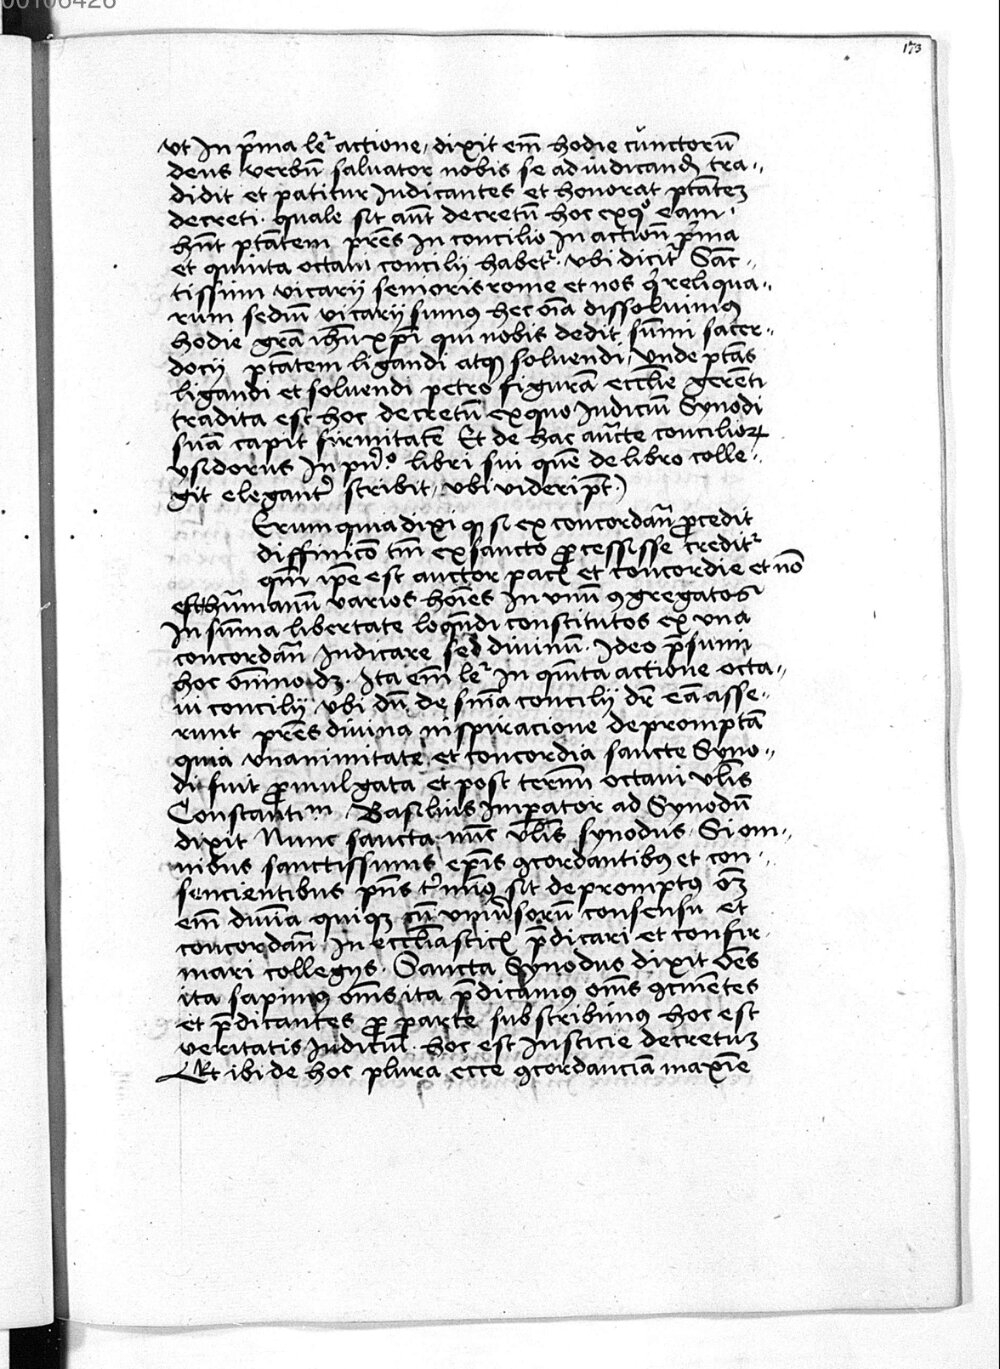 00106426
173
vt In p̃ma leʳ actione / dixit em̄ hodie cunctorū
deus verbū saluator nobis se ad iudicand tra-
didit et patitur Iudicantes et honorat ptātem
decreti. quale sit aūt decretū hoc ex qͦ eam
hn̄t ptātem pr̄es In concilio In actioñ p̃ma
et quinta octaui concilij habetʳ. vbi dicitʳ Sanc-
tissimi vicarij senioris rome et nos qͥ reliqua-
rum sediū vicarij sumꝰ hec oīa dissoluimꝰ
hodie gr̄a ihū xpī qui nobis dedit sūmi sacer-
docij ptātem ligandi atqꝫ soluendi, vnde ptās
ligandi et soluendi petro figurā eccl̄ie gerēti
tradita est hoc decretū ex quo Iudiciū Synodi
suā capit firmitatē Et de hac auc̄te conciliorꝝ
ysidorus In pnͦ. libri sui quē de libro colle-
git eleganṫ scribit, vbi videri pt̄.)
Erum quia dixi qꝙ si ex concordan̄ ꝓcedit
diffinic̄o tn̄ ex sancto ꝓcessisse creditʳ
qm̄ ip̄e est auctor pacꝭ et concordie et nō
est hūmanū varios hoīes In vnū ꝯgregatos
In sūma libertate loquēdi constitutos ex vna
concordan̄ Iudicare sed diuinū. Ideo p̄sumi
hoc om̄ino dꝫ. Ita em̄ leʳ In quīta actione octa-
ui concilij vbi dū de sn̄ia concilij dr̄ eā asse-
runt pr̄es diuina inspiracione depromptā
quia vnanimitate et concordia sancte Syno-
di fuit ꝓmulgata et post termī octaui vl̄is
Constantiⁿᵐ. Basilius Imꝑator ad Synodū
dixit Nunc sancta nūc vl̄is synodus. Si om-
nibus sanctissimis ep̄is ꝯcordantibꝰ et con-
sencientibus pn̄s t̾minꝰ sit depromptꝰ oꝫ
em̄ diuīa quiqꝫ cū vniūsorū consensu et
concordan̄ In eccl̄iasticꝭ p̄dicari et confir-
mari collegijs. Sancta Synodus dixit oēs
ita sapimꝰ om̄s ita p̄dicamꝰ om̄s ꝯcinentes
et p̄dicantes ꝓ parte subscribimꝰ hoc est
veritatis Iudiciū. hoc est Iusticie decretum
Et ibi de hoc plura ecce ꝯcordanciā maxīe